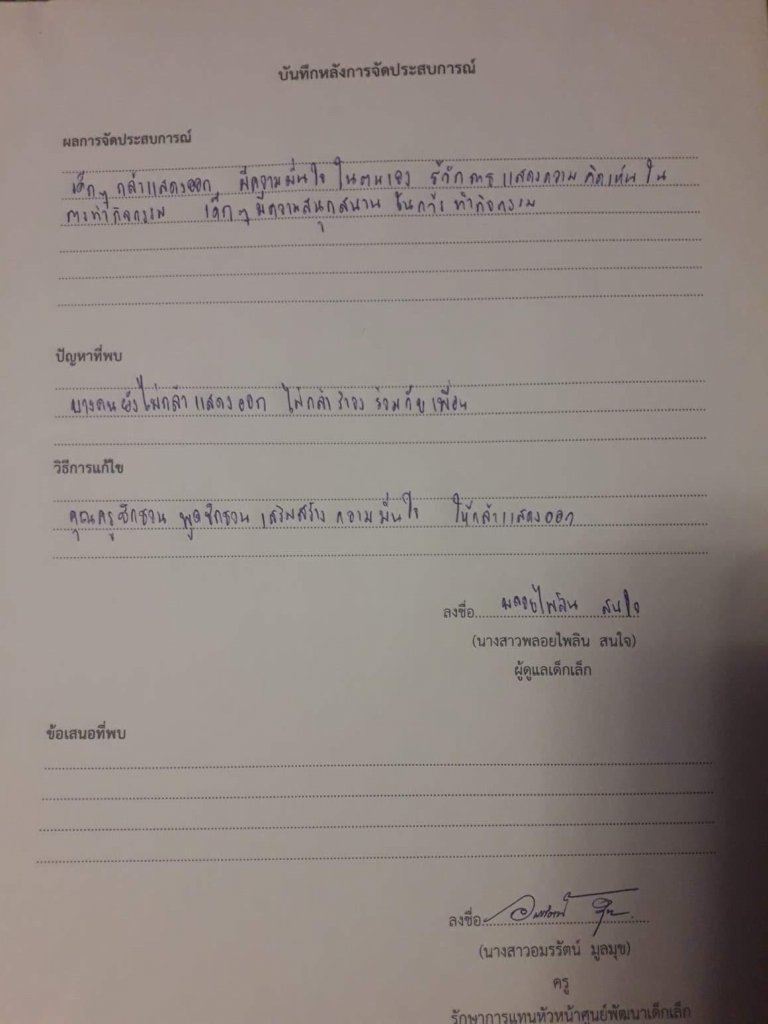 บันทึกหลังการจัดประสบการณ์
ผลการจัดประสบการณ์
เด็กๆ กล้าแสดงออก มีความมั่นใจ ในตนเอง รู้จักการแสดงความคิดเห็นใน
การทำกิจกรรม เด็กๆ มีความสนุกสนาน ในการทำกิจกรรม
ปัญหาที่พบ
บางคนยังไม่กล้าแสดงออก ไม่กล้า ร่วมกับเพื่อน
วิธีการแก้ไข
คุณครูชักชวน พูดชักชวน เสริมสร้างความมั่นใจ ให้กล้าแสดงออก
ลงชื่อ พลอยไพลิน สนใจ
(นางสาวพลอยไพลิน สนใจ)
ผู้ดูแลเด็กเล็ก
ข้อเสนอที่พบ
ลงชื่อ
(นางสาวอมรรัตน์ มูลมุข)
ครู
รักษาการแทนหัวหน้าศูนย์พัฒนาเด็กเล็ก